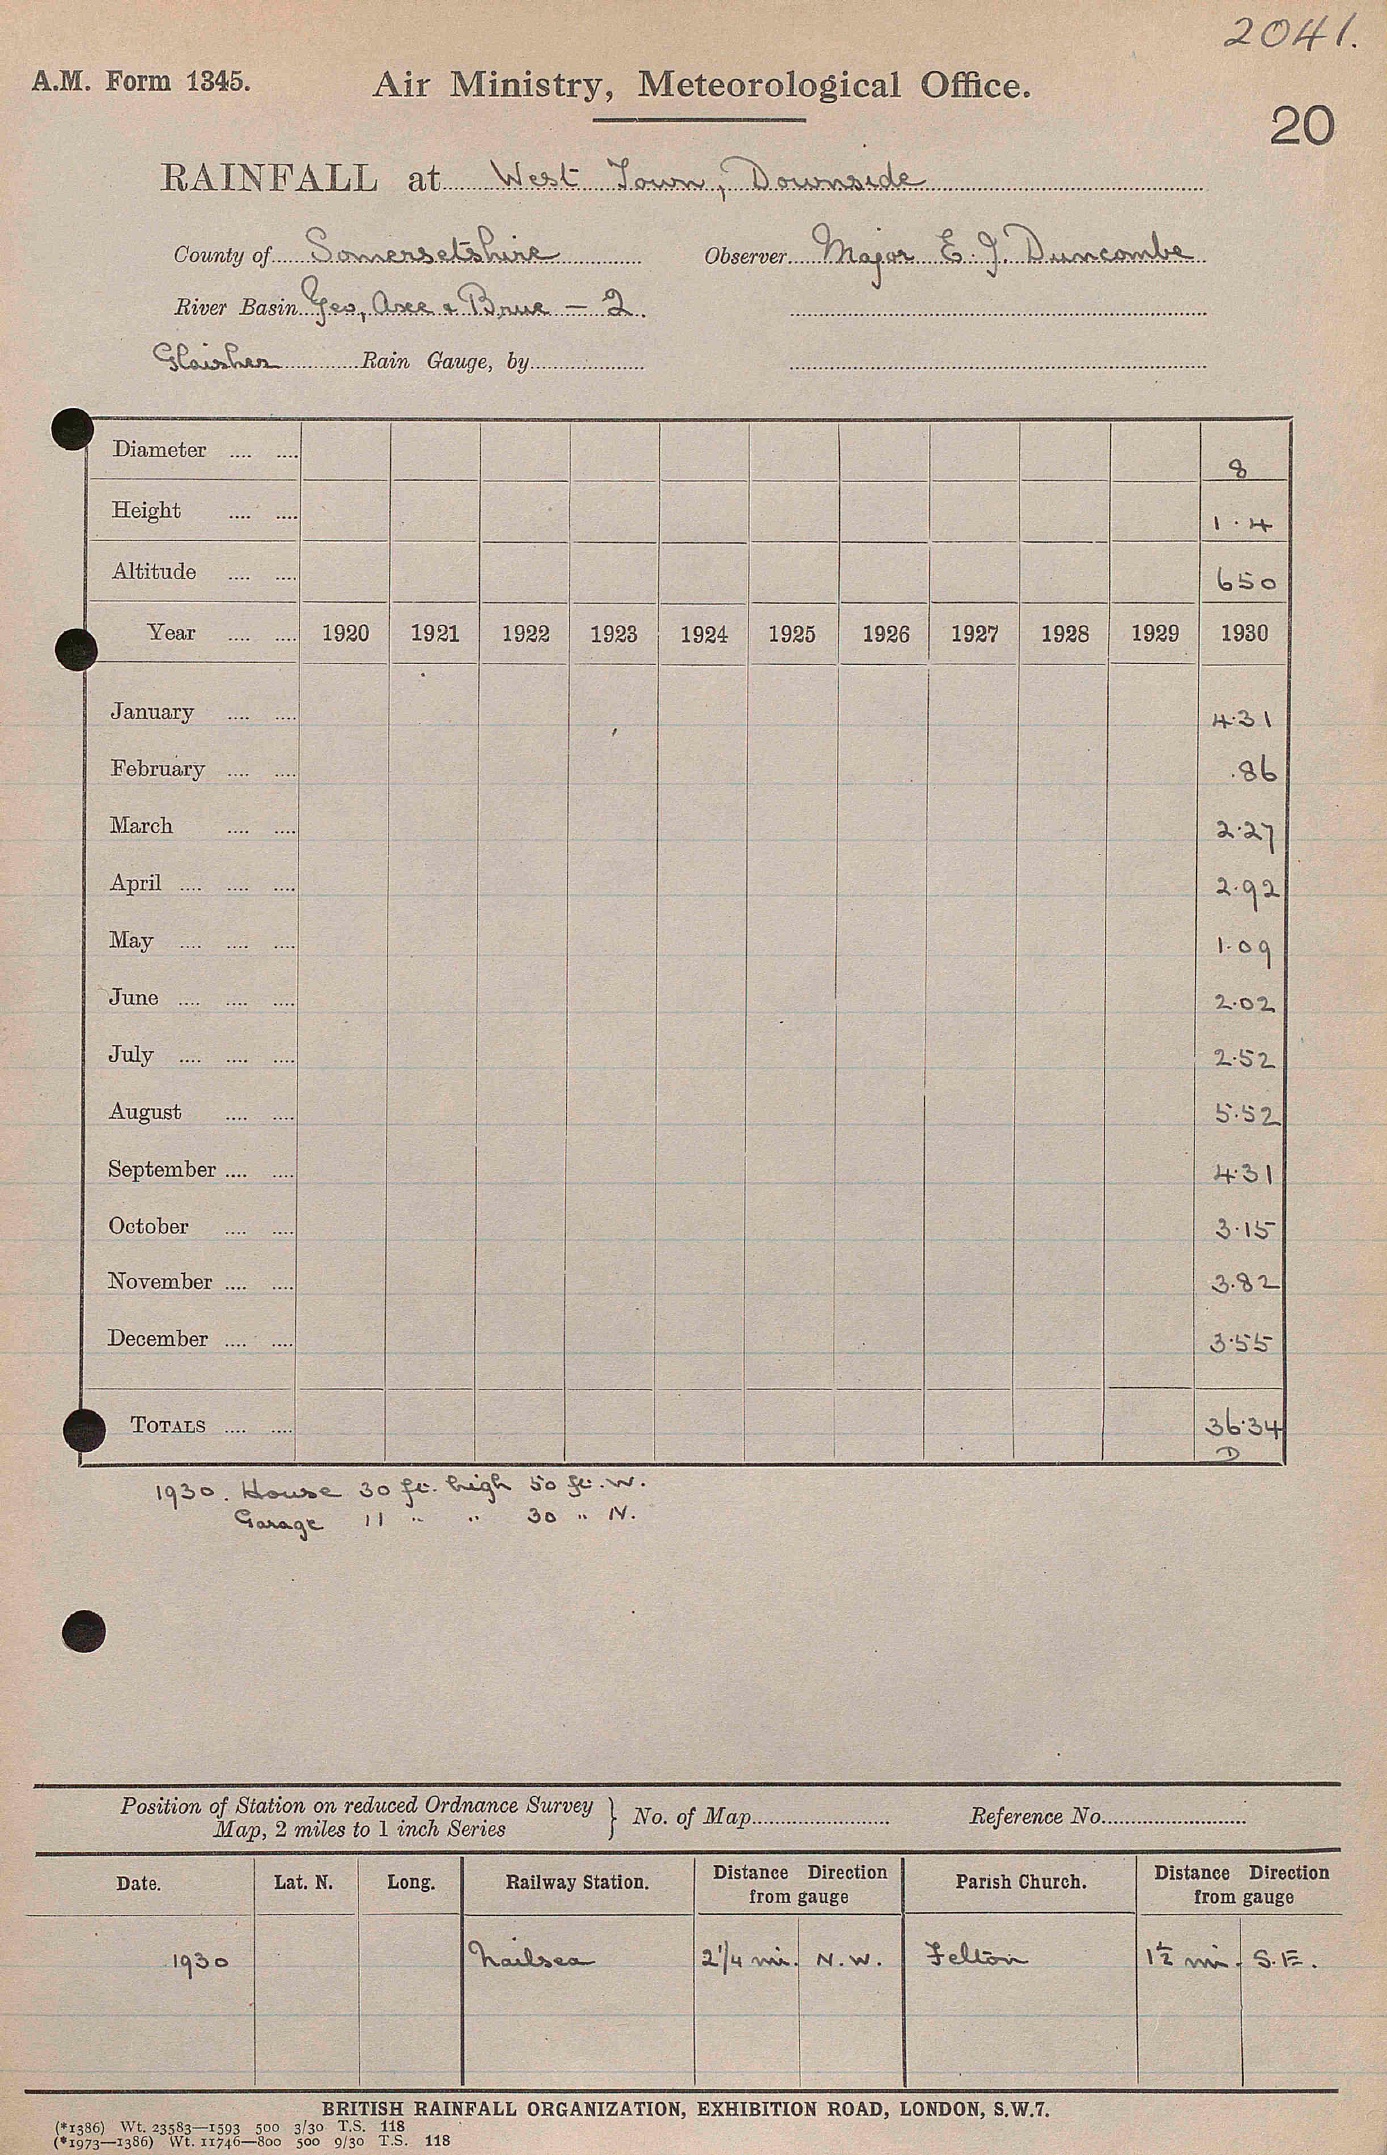 2041.
A.M. Form 1345. Air Ministry, Meteorological Office.
20
RAINFALL at West Town, Downside
County of Somersetshire Observer Major E. J. Duncombe
River Basin Yeo, Axe & Brue — 2.
Glaisher Rain Gauge, by
Diameter .... .... 8
Height .... .... 1.4
Altitude .... .... 650
Year .... .... 1920 1921 1922 1923 1924 1925 1926 1927 1928 1929 1930
January .... .... 4.31
February .... .... .86
March .... .... 2.27
April .... .... .... 2.92
May .... .... .... 1.09
June .... .... .... 2.02
July .... .... .... 2.52
August .... .... 5.52
September .... .... 4.31
October .... .... 3.15
November .... .... 3.82
December .... .... 3.55
TOTALS .... .... 36.34
D
1930. House 30 ft. high 50 ft. W.
Garage 11 " " 30 " N.
Position of Station on reduced Ordnance Survey Map, 2 miles to 1 inch Series } No. of Map Reference No.
Date. Lat. N. Long. Railway Station. Distance Direction from gauge Parish Church. Distance Direction from gauge
1930 Nailsea 2 1/4 mi. N.W. Felton 1 1/2 mi. S.E.
BRITISH RAINFALL ORGANIZATION, EXHIBITION ROAD, LONDON, S.W.7.
(*1386) Wt. 23583—1593 500 3/30 T.S. 118
(*1973—1386) Wt. 11746—800 500 9/30 T.S. 118